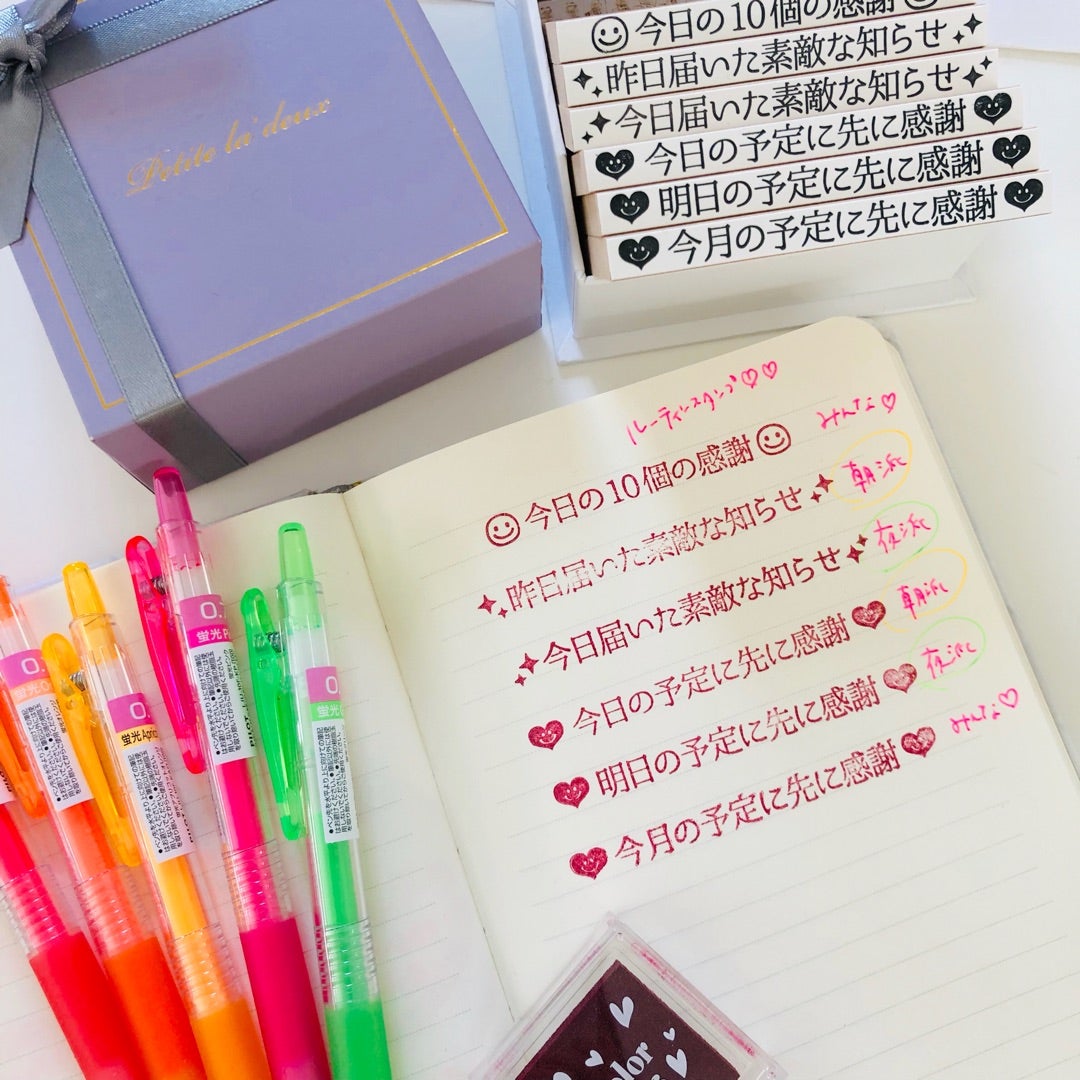 Petite la' deux
今日の10個の感謝
昨日届いた素敵な知らせ
今日届いた素敵な知らせ
今日の予定に先に感謝
明日の予定に先に感謝
今月の予定に先に感謝
ルーティンスタンプ♡♡
みんな♡
今日の10個の感謝
朝派
昨日届いた素敵な知らせ
夜派
今日届いた素敵な知らせ
朝派
今日の予定に先に感謝
夜派
明日の予定に先に感謝
みんな♡
今月の予定に先に感謝
0.
蛍光
0.
蛍光 Apric
0.7
蛍光 P
0.
蛍光
olor